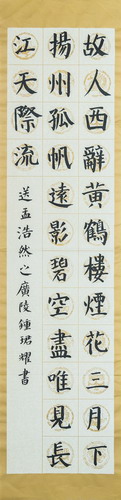 故人西辭黃鶴樓煙花三月下
揚州孤帆遠影碧空盡唯見長
江天際流
送孟浩然之廣陵鍾珺耀書